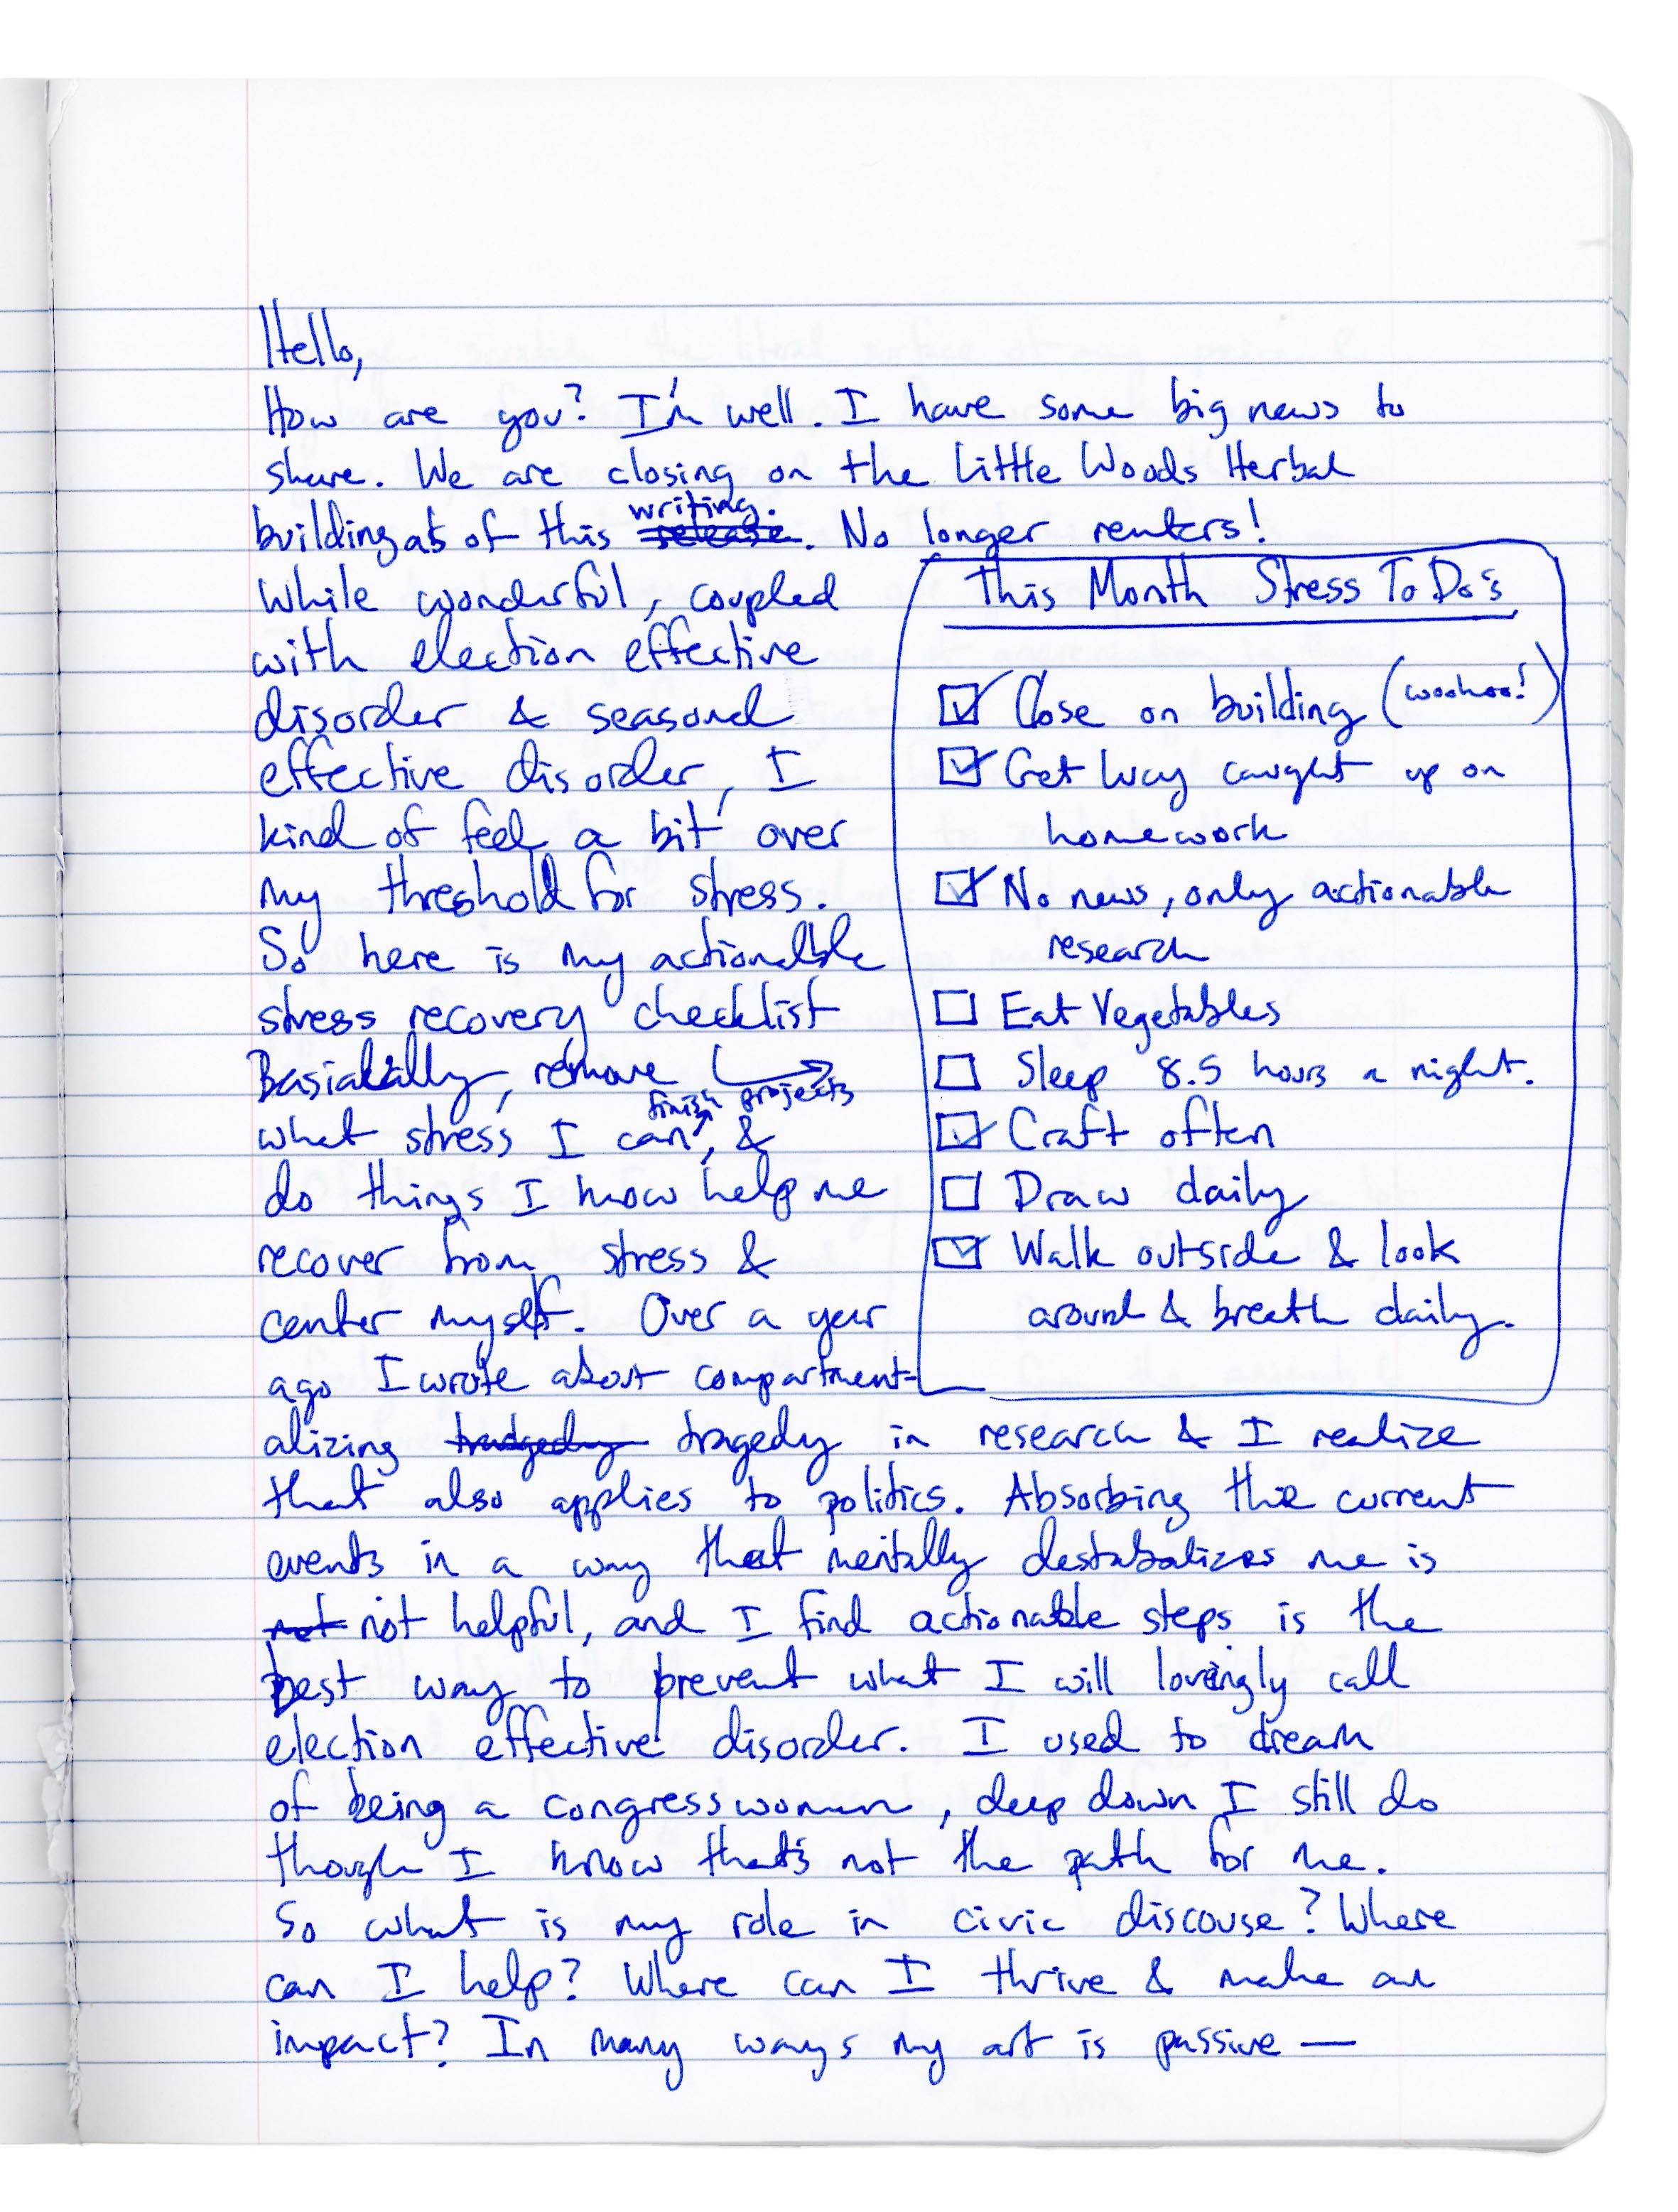 Hello,
How are you? I'm well. I have some big news to
share. We are closing on the Little Woods Herbal
writing.
building as of this release. No longer renters!
While wonderful, coupled
with election effective
disorder & seasonal
effective disorder, I
kind of feel a bit over
my threshold for stress.
So here is my actionable
stress recovery checklist
Basically, remove
finish projects
what stress I can, &
do things I know help me
recover from stress &
center myself. Over a year
ago I wrote about compartment-
This Month Stress To Do's
Close on building (woohoo!)
Get Way caught up on
homework
No news, only actionable
research
Eat Vegetables
Sleep 8.5 hours a night.
Craft often
Draw daily
Walk outside & look
around & breath daily.
alizing tradgedy tragedy in research & I realize
that also applies to politics. Absorbing the current
events in a way that mentally destabalizes me is
not not helpful, and I find actionable steps is the
best way to prevent what I will lovingly call
election effective disorder. I used to dream
of being a congresswoman, deep down I still do
though I know that's not the path for me.
So what is my role in civic discouse? Where
can I help? Where can I thrive & make an
impact? In many ways my art is passive —